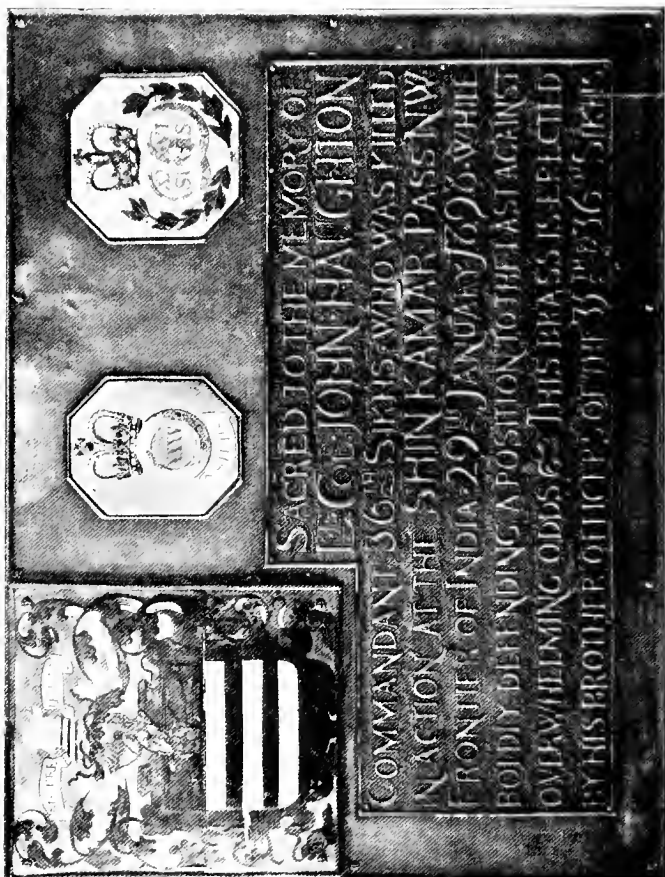 SACRED TO THE MEMORY OF
JOHN HAUGHTON
COMMANDANT 36TH SIKHS, WHO WAS KILLED
IN ACTION AT THE SHIN KAMAR PASS N W
FRONTIER OF INDIA 29TH JANUARY 1898 WHILE
BOLDLY DEFENDING A POSITION TO THE LAST AGAINST
OVERWHELMING ODDS THIS BRASS IS ERECTED
BY HIS BROTHER OFFICERS OF THE 35TH & 36TH SIKHS
XXXV
SIKHS